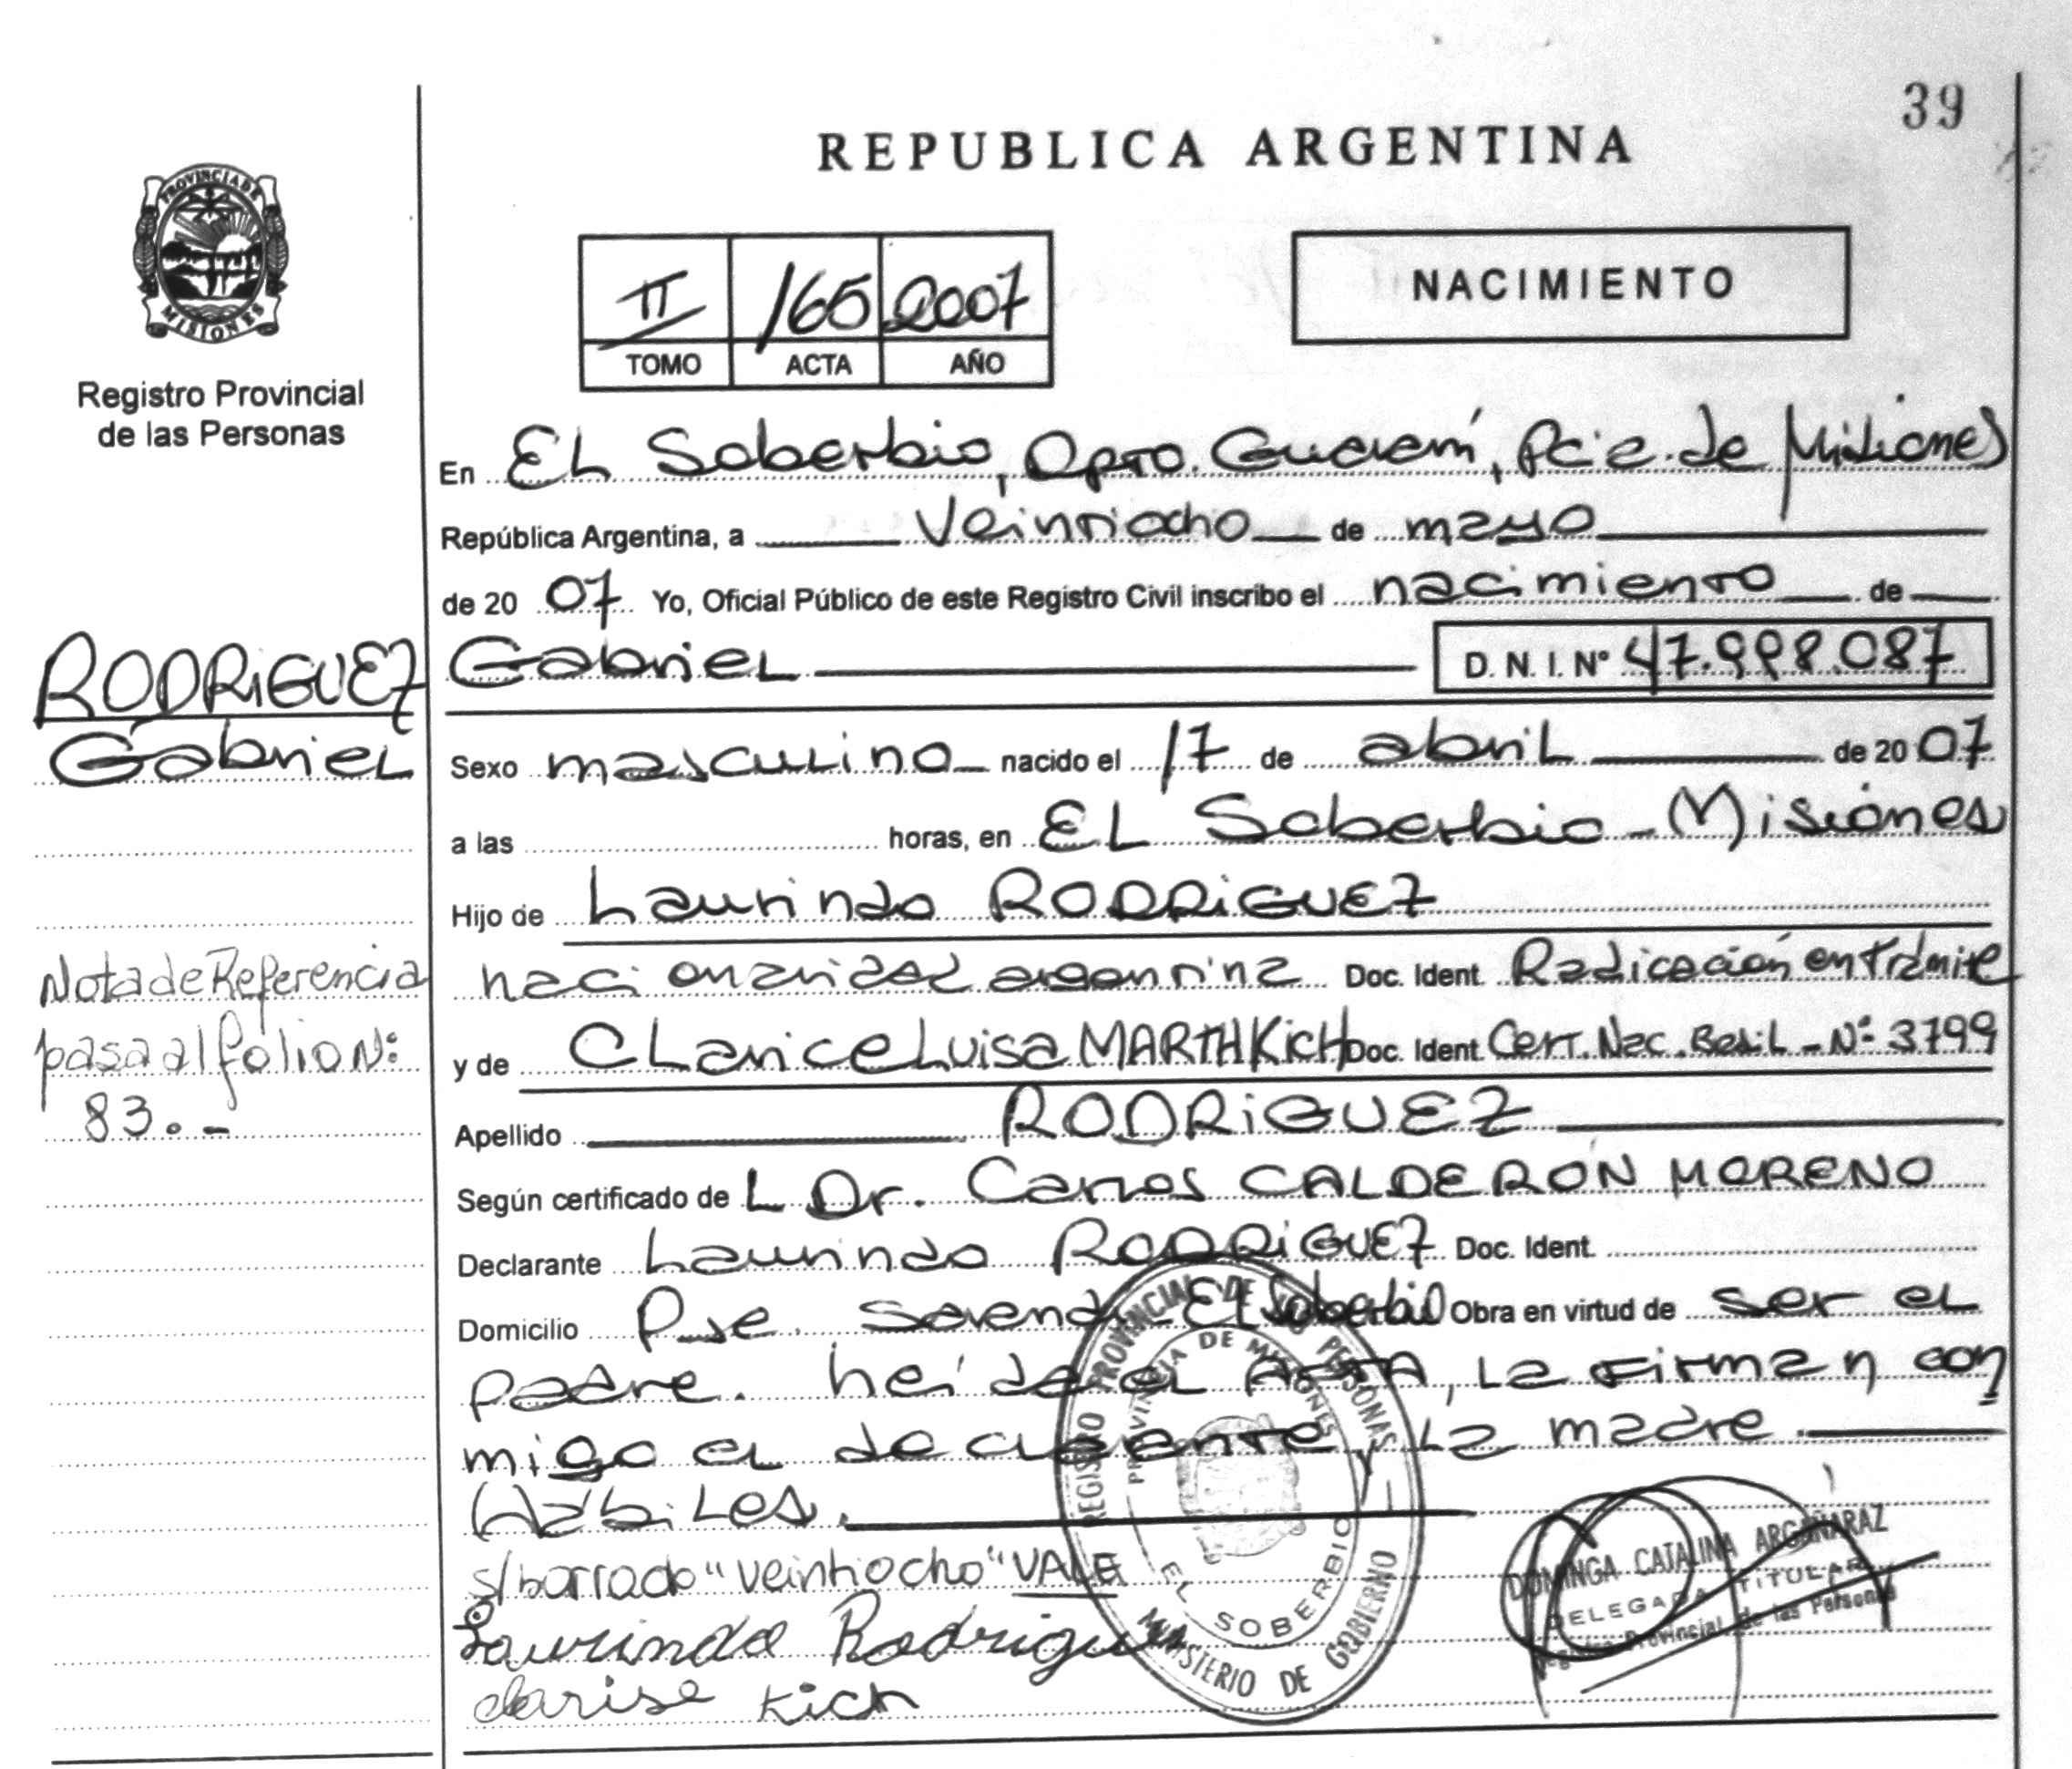 39
REPUBLICA ARGENTINA
PROVINCIA DE
MISIONES
Registro Provincial
de las Personas
II 165 2007
TOMO ACTA AÑO
NACIMIENTO
En EL Soberbio, Dpto. Guaraní, Pcia. de Misiones
República Argentina, a Veintiocho de mayo
de 20 07 Yo, Oficial Público de este Registro Civil inscribo el nacimiento de
RODRiGUEZ
Gabriel
Gabriel D. N. I. Nº 47.998.087
Sexo masculino nacido el 17 de abril de 20 07
a las horas, en EL Soberbio - Misiones
Hijo de Laurindo RODRiGUEZ
nacionalidad argentina Doc. Ident. Radicación en trámite
y de CLarice Luisa MARTH KicH Doc. Ident. Cert. Nac. Brasil - Nº 3799
Nota de Referencia
pasa al folio Nº:
83.-
Apellido RODRiGUEZ
Según certificado deL Dr. Carlos CALDERÓN MORENO
Declarante Laurindo RODRiGUEZ Doc. Ident.
Domicilio Pje. El Soberbio Obra en virtud de ser el
padre. Leída el ACTA, La firman con
migo el declarante y La madre.
Hábiles.
s/borrado "veintiocho" VALE
Laurindo Rodrigues
clarise Kich
REGISTRO PROVINCIAL DE LAS PERSONAS
MINISTERIO DE GOBIERNO
PROVINCIA DE MISIONES
EL SOBERBIO
DOMINGA CATALINA ARGAÑARAZ
DELEGADA TITULAR
Registro Provincial de las Personas